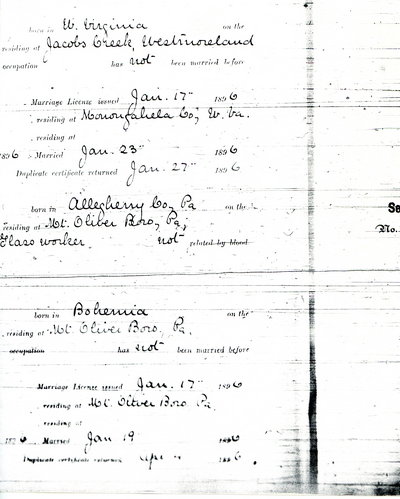 born in W. Virginia on the
residing at Jacobs Creek, Westmoreland
occupation has not been married before
Marriage License issued Jan. 17" 1896
residing at Monongahela Co., W. Va.
residing at
1896 Married Jan. 23" 1896
Duplicate certificate returned Jan. 27" 1896
born in Allegheny Co., Pa on the
residing at Mt. Oliver Boro, Pa,
Glass worker. not related by blood
No.
born in Bohemia on the
residing at Mt Oliver Boro, Pa.
occupation has not been married before
Marriage License issued Jan. 17" 1896
residing at Mt. Oliver Boro Pa
residing at
Married Jan 19 1896
Duplicate certificate returned 1896